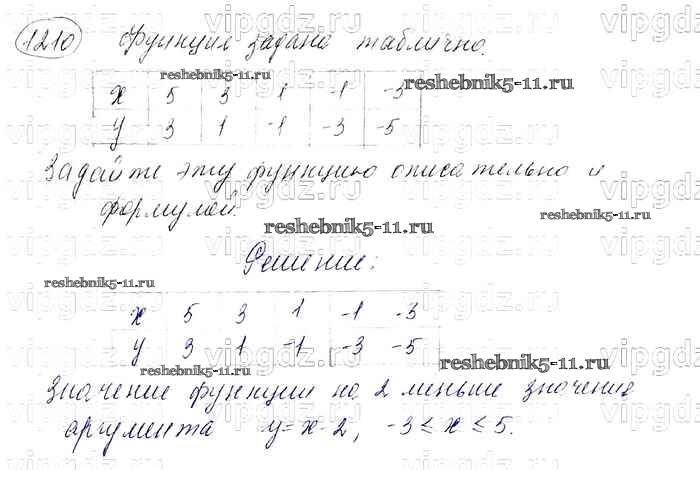 1210 Функция задана таблично.
x 5 3 1 -1 -3
y 3 1 -1 -3 -5
Задайте эту функцию описательно и
формулой.
Решение:
x 5 3 1 -1 -3
y 3 1 -1 -3 -5
Значение функции на 2 меньше значение
аргумента y=x-2, -3≤x≤5.
reshebnik5-11.ru
reshebnik5-11.ru
reshebnik5-11.ru
reshebnik5-11.ru
reshebnik5-11.ru
reshebnik5-11.ru
reshebnik5-11.ru
vipgdz.ru